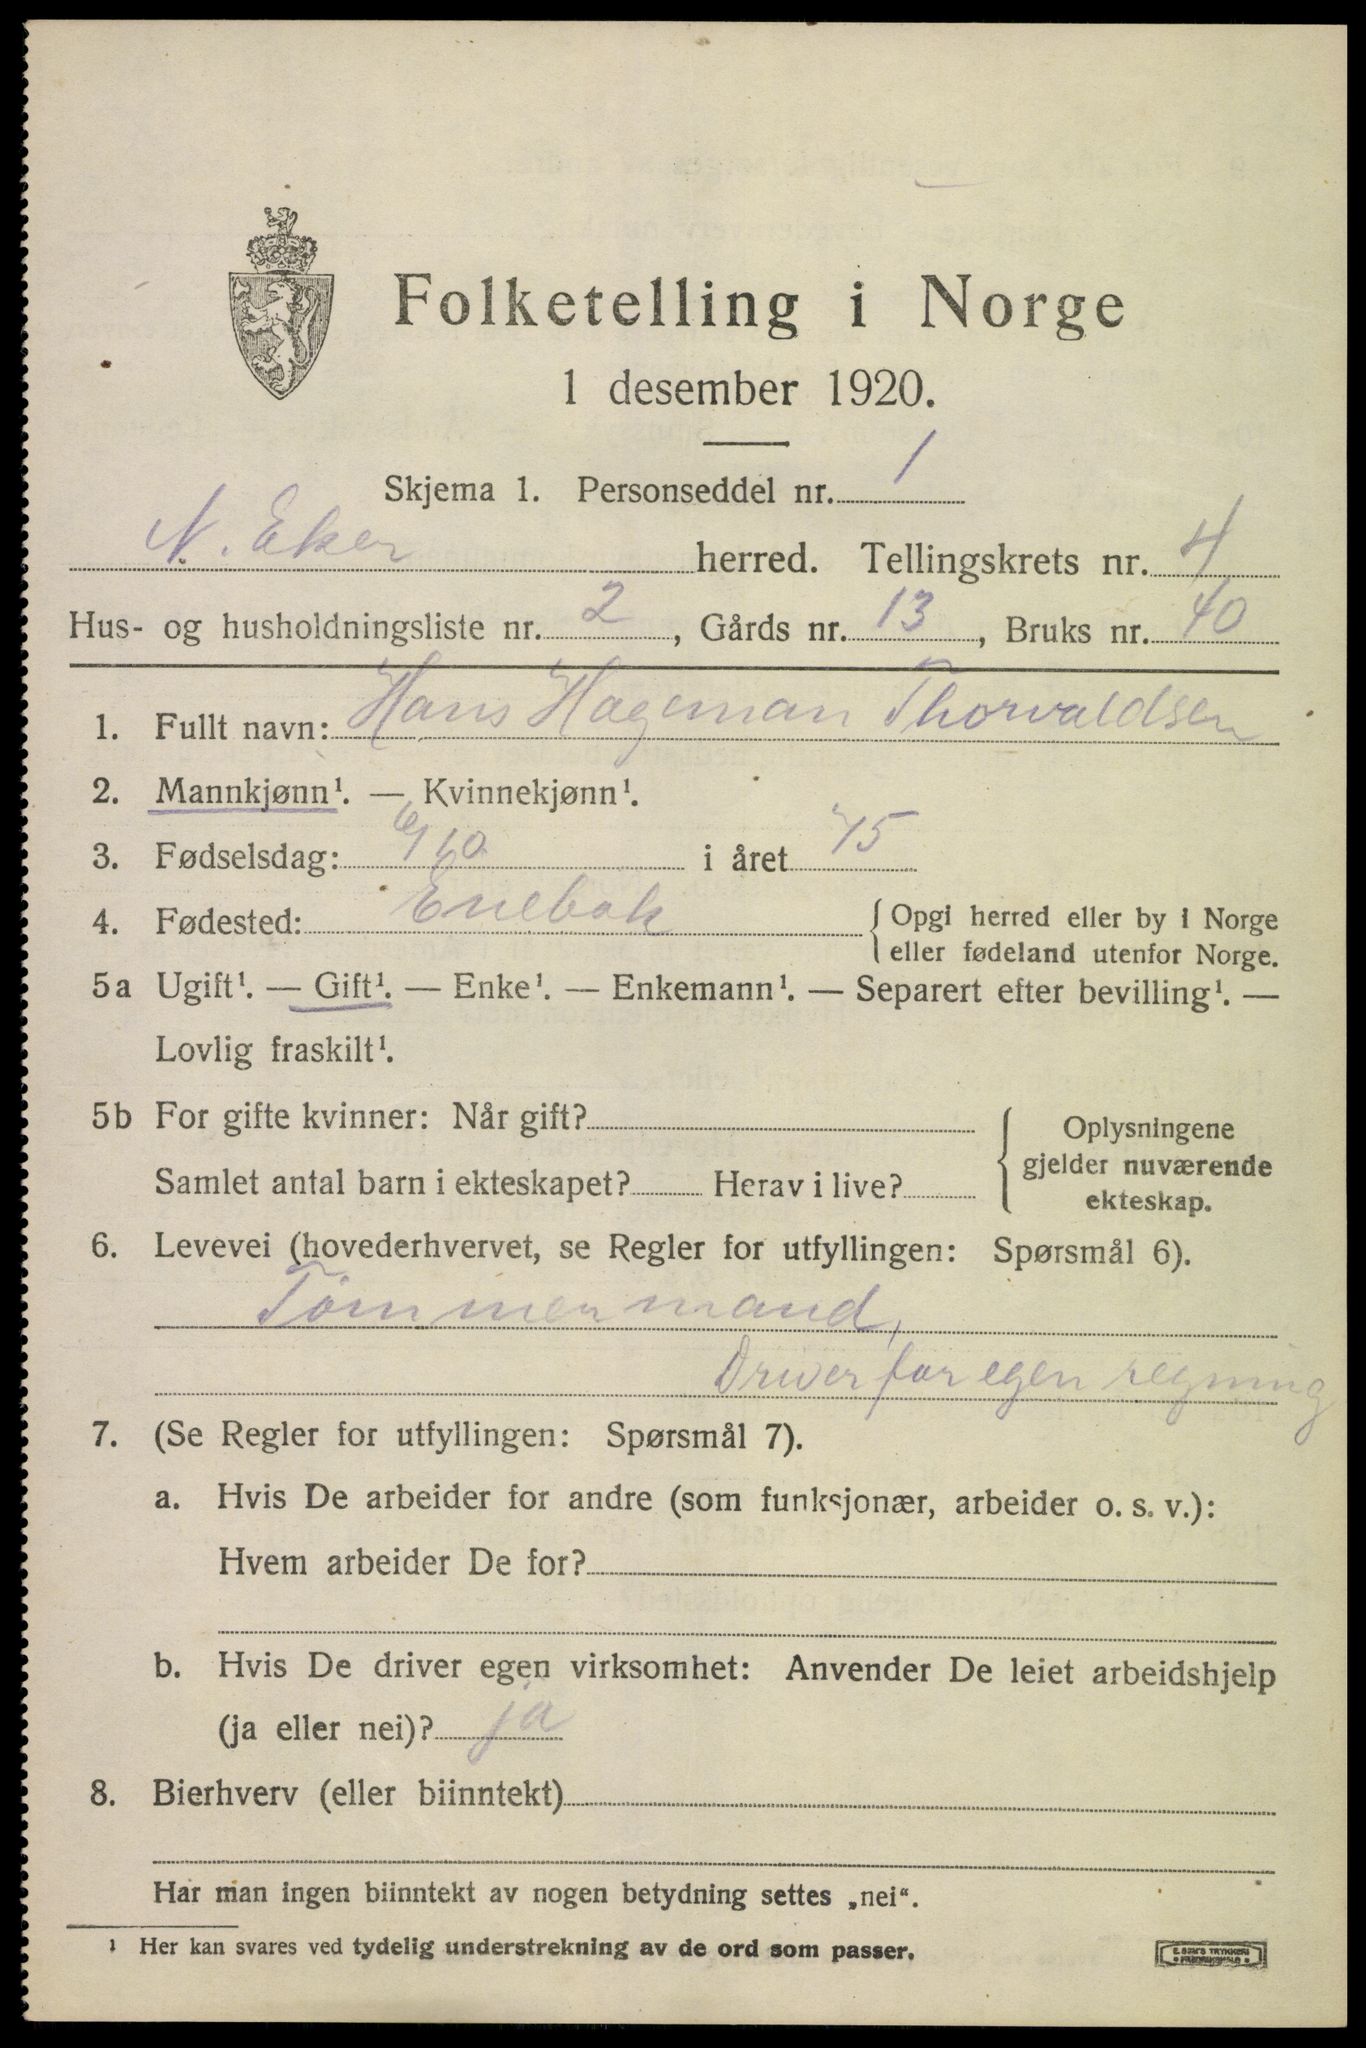 Folketelling i Norge
1 desember 1920.
Skjema 1. Personseddel nr. 1
N. Eker herred. Tellingskrets nr. 4
Hus- og husholdningsliste nr. 2, Gårds nr. 13, Bruks nr. 40
1. Fullt navn: Hans Hageman Thorvaldsen
2. Mannkjønn¹. — Kvinnekjønn¹.
3. Fødselsdag: 6/10 i året 75
4. Fødested: Enebak { Opgi herred eller by i Norge
eller fødeland utenfor Norge.
5a Ugift¹. — Gift¹. — Enke¹. — Enkemann¹. — Separert efter bevilling¹. —
Lovlig fraskilt¹.
5b For gifte kvinner: Når gift? { Oplysningene
gjelder nuværende
Samlet antal barn i ekteskapet? Herav i live?
ekteskap.
6. Levevei (hovederhvervet, se Regler for utfyllingen: Spørsmål 6).
Tømmermand,
Driver for egen regning
7. (Se Regler for utfyllingen: Spørsmål 7).
a. Hvis De arbeider for andre (som funksjonær, arbeider o. s. v.):
Hvem arbeider De for?
b. Hvis De driver egen virksomhet: Anvender De leiet arbeidshjelp
(ja eller nei)? ja
8. Bierhverv (eller biinntekt)
Har man ingen biinntekt av nogen betydning settes „nei“.
¹ Her kan svares ved tydelig understrekning av de ord som passer.